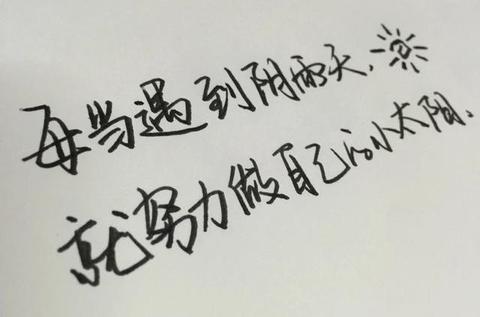 每当遇到阴雨天,
就努力做自己的小太阳.